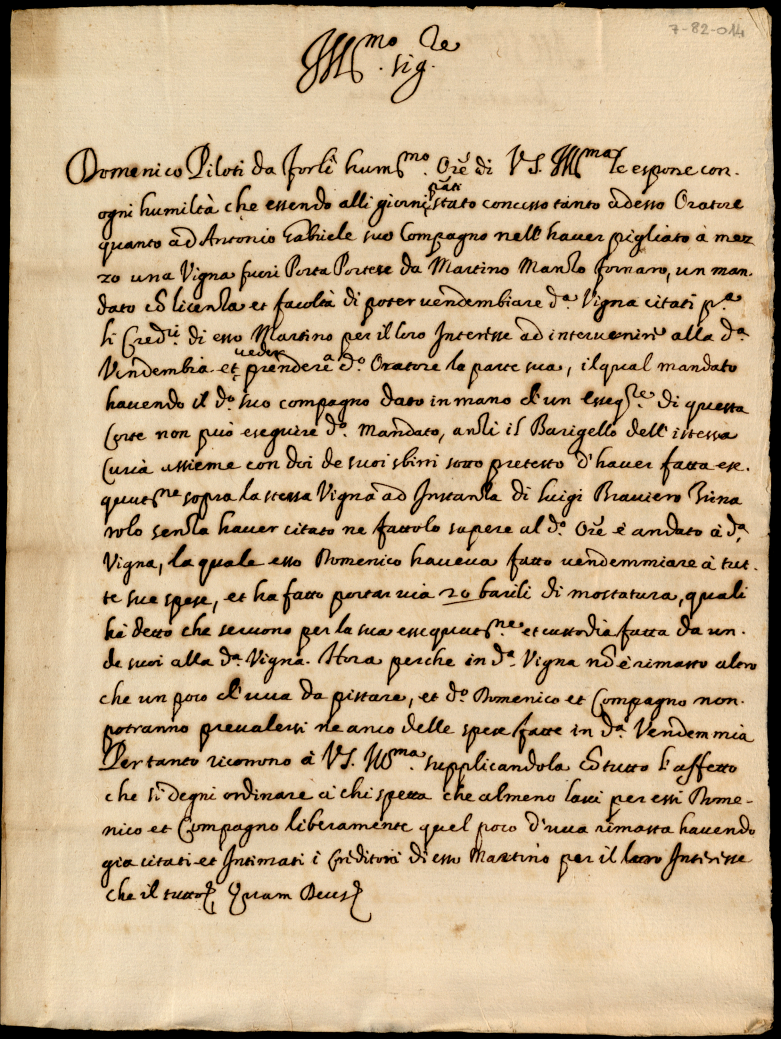 7-82-014
Ill.mo Sig.re
Domenico Piloti da Forlì hum.mo Ore di VS. Ill.ma le espone con.
ogni humiltà che essendo alli giorni pňti stato concesso tanto ad esso Oratore
quanto ad Antonio Gabriele suo Compagno nell' haver pigliato à mez
zo una Vigna fuori Porta Portese da Martino fornaro, un man.
dato cō licenza et facoltà di poter vendembiare d.a Vigna citati p.a
li Cred.ri di esso Martino per il loro Interesse ad intervenire alla d.a
Vendembia et veder prendere a d.o Oratore la parte sua, il qual mandato
havendo il d.o suo compagno dato in mano d'un esseq.re di questa
Corte non può eseguire d.o Mandato, anzi il Barigello dell' istessa
Curia assieme con doi de suoi sbirri sotto pretesto d'haver fatta ese.
quut.ne sopra la stessa Vigna ad Instanza di Luigi Braviero
rolo senza haver citato ne fattolo sapere al d.o Ore è andato à d.a
Vigna, la quale esso Domenico haveva fatto vendemmiare à tut.
te sue spese, et ha fatto portar via 20 barili di mostatura, quali
hà detto che servono per la sua essequut.ne et custodia fatta da un.
de suoi alla d.a Vigna. Hora perche in d.a Vigna nō è rimasto altro
che un poco d'uva da pistare, et d.o Domenico et Compagno non.
potranno prevalersi ne anco delle spese fatte in d.a Vendemmia
Per tanto ricorrono à VS. Ill.ma supplicandola cō tutto l'affetto
che si degni ordinare à chi spetta che almeno lassi per essi Dome-
nico et Compagno liberamente quel poco d'uva rimasta havendo
gia citati et Intimati i Creditori di esso Martino per il loro Interesse
che il tutto, Quam Deus